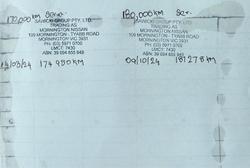 170,000 km Ser.
SAMBOR GROUP PTY. LTD.
TRADING AS
MORNINGTON NISSAN
109 MORNINGTON - TYABB ROAD
MORNINGTON VIC 3931
PH: (03) 5971 0700
LMCT: 7430
ABN: 39 094 653 848
14/03/24 174 950 km
180,000 km Ser.
SAMBOR GROUP PTY. LTD.
TRADING AS
MORNINGTON NISSAN
109 MORNINGTON - TYABB ROAD
MORNINGTON VIC 3931
PH: (03) 5971 0700
LMCT: 7430
ABN: 39 094 653 848
09/10/24 181278 km